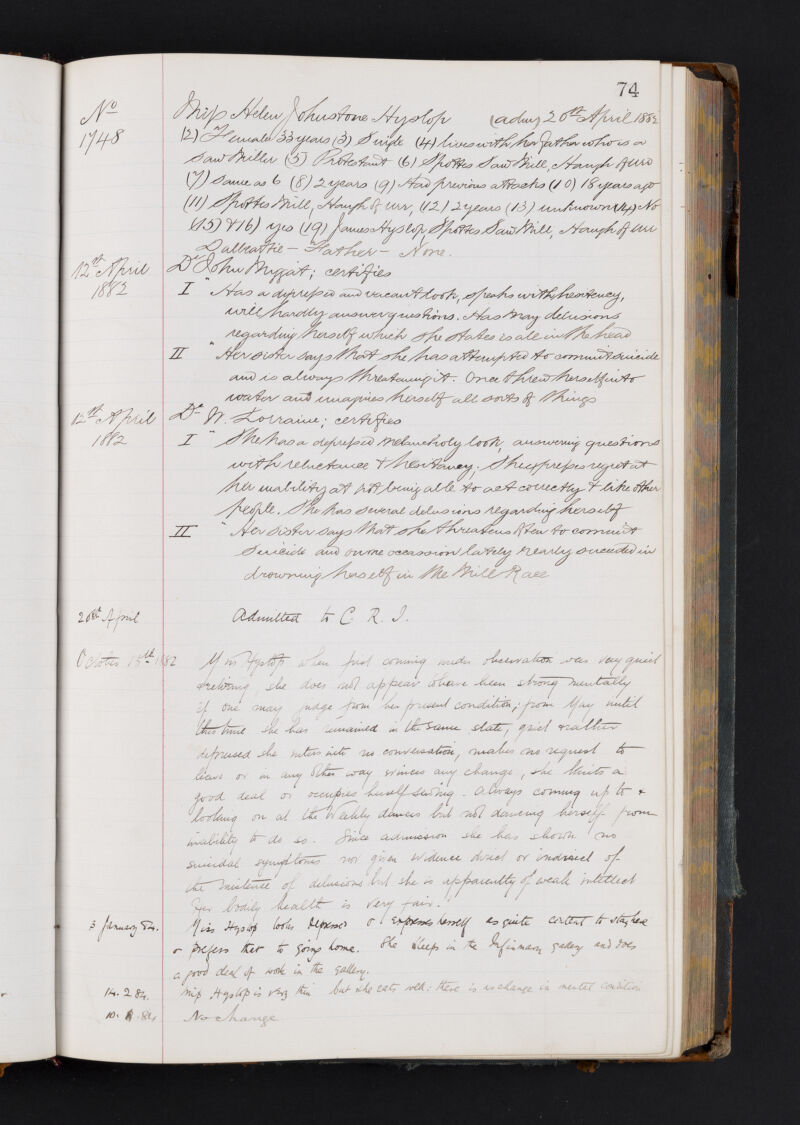 74
No 1748
Miss Helen Johnstone Hyslop (adm) 20th April 1882
(2) Female 33 years (3) Single (4) lives with her father who is a
Saw Miller (5) Protestant (6) Spottes Saw Mill, Haugh of Urr
(7) Same as 6 (8) 2 years (9) Had previous attacks (10) 18 years ago
(11) Spottes Mill, Haugh of Urr, (12) 2 years (13) unknown (14) No
(15) & 16) yes (19) James Hyslop, Spottes Saw Mill, Haugh of Urr
Dalbeattie – Father – None.
12th April 1882
Dr John ; certifies
I "Has a depressed and vacant look, speaks with hesitency,
will hardly answer questions. Has many delusions
regarding herself which she states is all in the head
II "Her sister says that she has attempted to commit suicide
and is always threatening it. Once threw herself into
water and imagines herself all sorts of things
12th April 1882
Dr W. Lorraine; certifies
I "She has a depressed melancholy look, answering questions
with reluctance & hesitancy, She expresses regret at
her inability at not being able to act correctly & like other
people. She has several delusions regarding herself
II "Her sister says that she threatens often to commit
Suicide and on one occassion lately nearly succeeded in
drowning herself in the Mill Race
20th April Admitted to C. R. I.
October 15th 1882 Miss Hyslop when first coming under observation was very quiet
& retiring, she does not appear to have been strong mentally
if one may judge from her present condition; from May until
this time she has remained in the same state, quiet & rather
depressed she enters into no conversation, makes no request to
leave or in any other way evinces any change, she knits a
good deal or occupies herself sewing. Always coming up to &
looking on at the weekly dances but not dancing herself from
inability to do so. Since admission she has shown no
suicidal symptoms nor given evidence direct or indirect of
the existence of delusions but she is apparently of weak intellect
Her bodily health is very fair.
3 January 84. Miss Hyslop looks depressed & expresses herself as quite content to stay here
& prefers that to going home. She sleeps in the Infirmary gallery and does
a good deal of work in the gallery.
14. 2 84. Miss Hyslop is very thin but she eats well: there is no change in mental condition
10. 84 No change